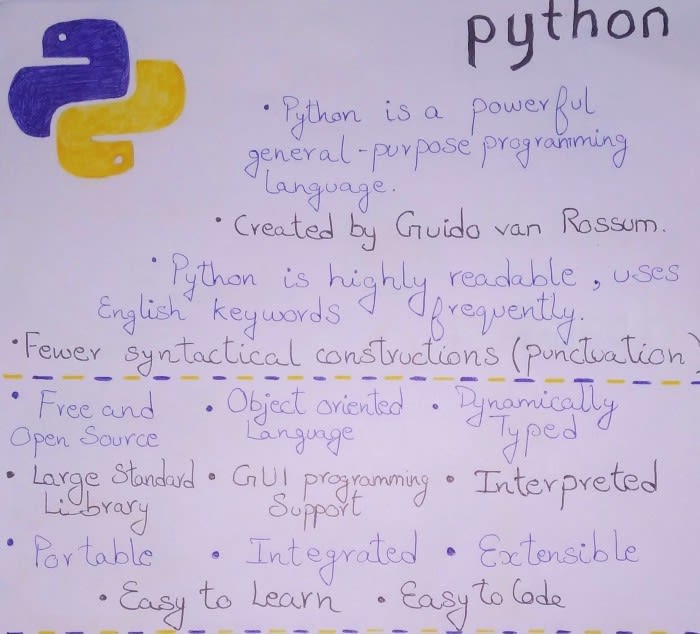 python
• Python is a powerful
general-purpose programming
language.
• Created by Guido van Rossum.
• Python is highly readable, uses
English keywords frequently.
• Fewer syntactical constructions (punctuation)
• Free and • Object oriented • Dynamically
Open Source Language Typed
• Large Standard • GUI programming • Interpreted
Library Support
• Portable • Integrated • Extensible
• Easy to Learn • Easy to Code